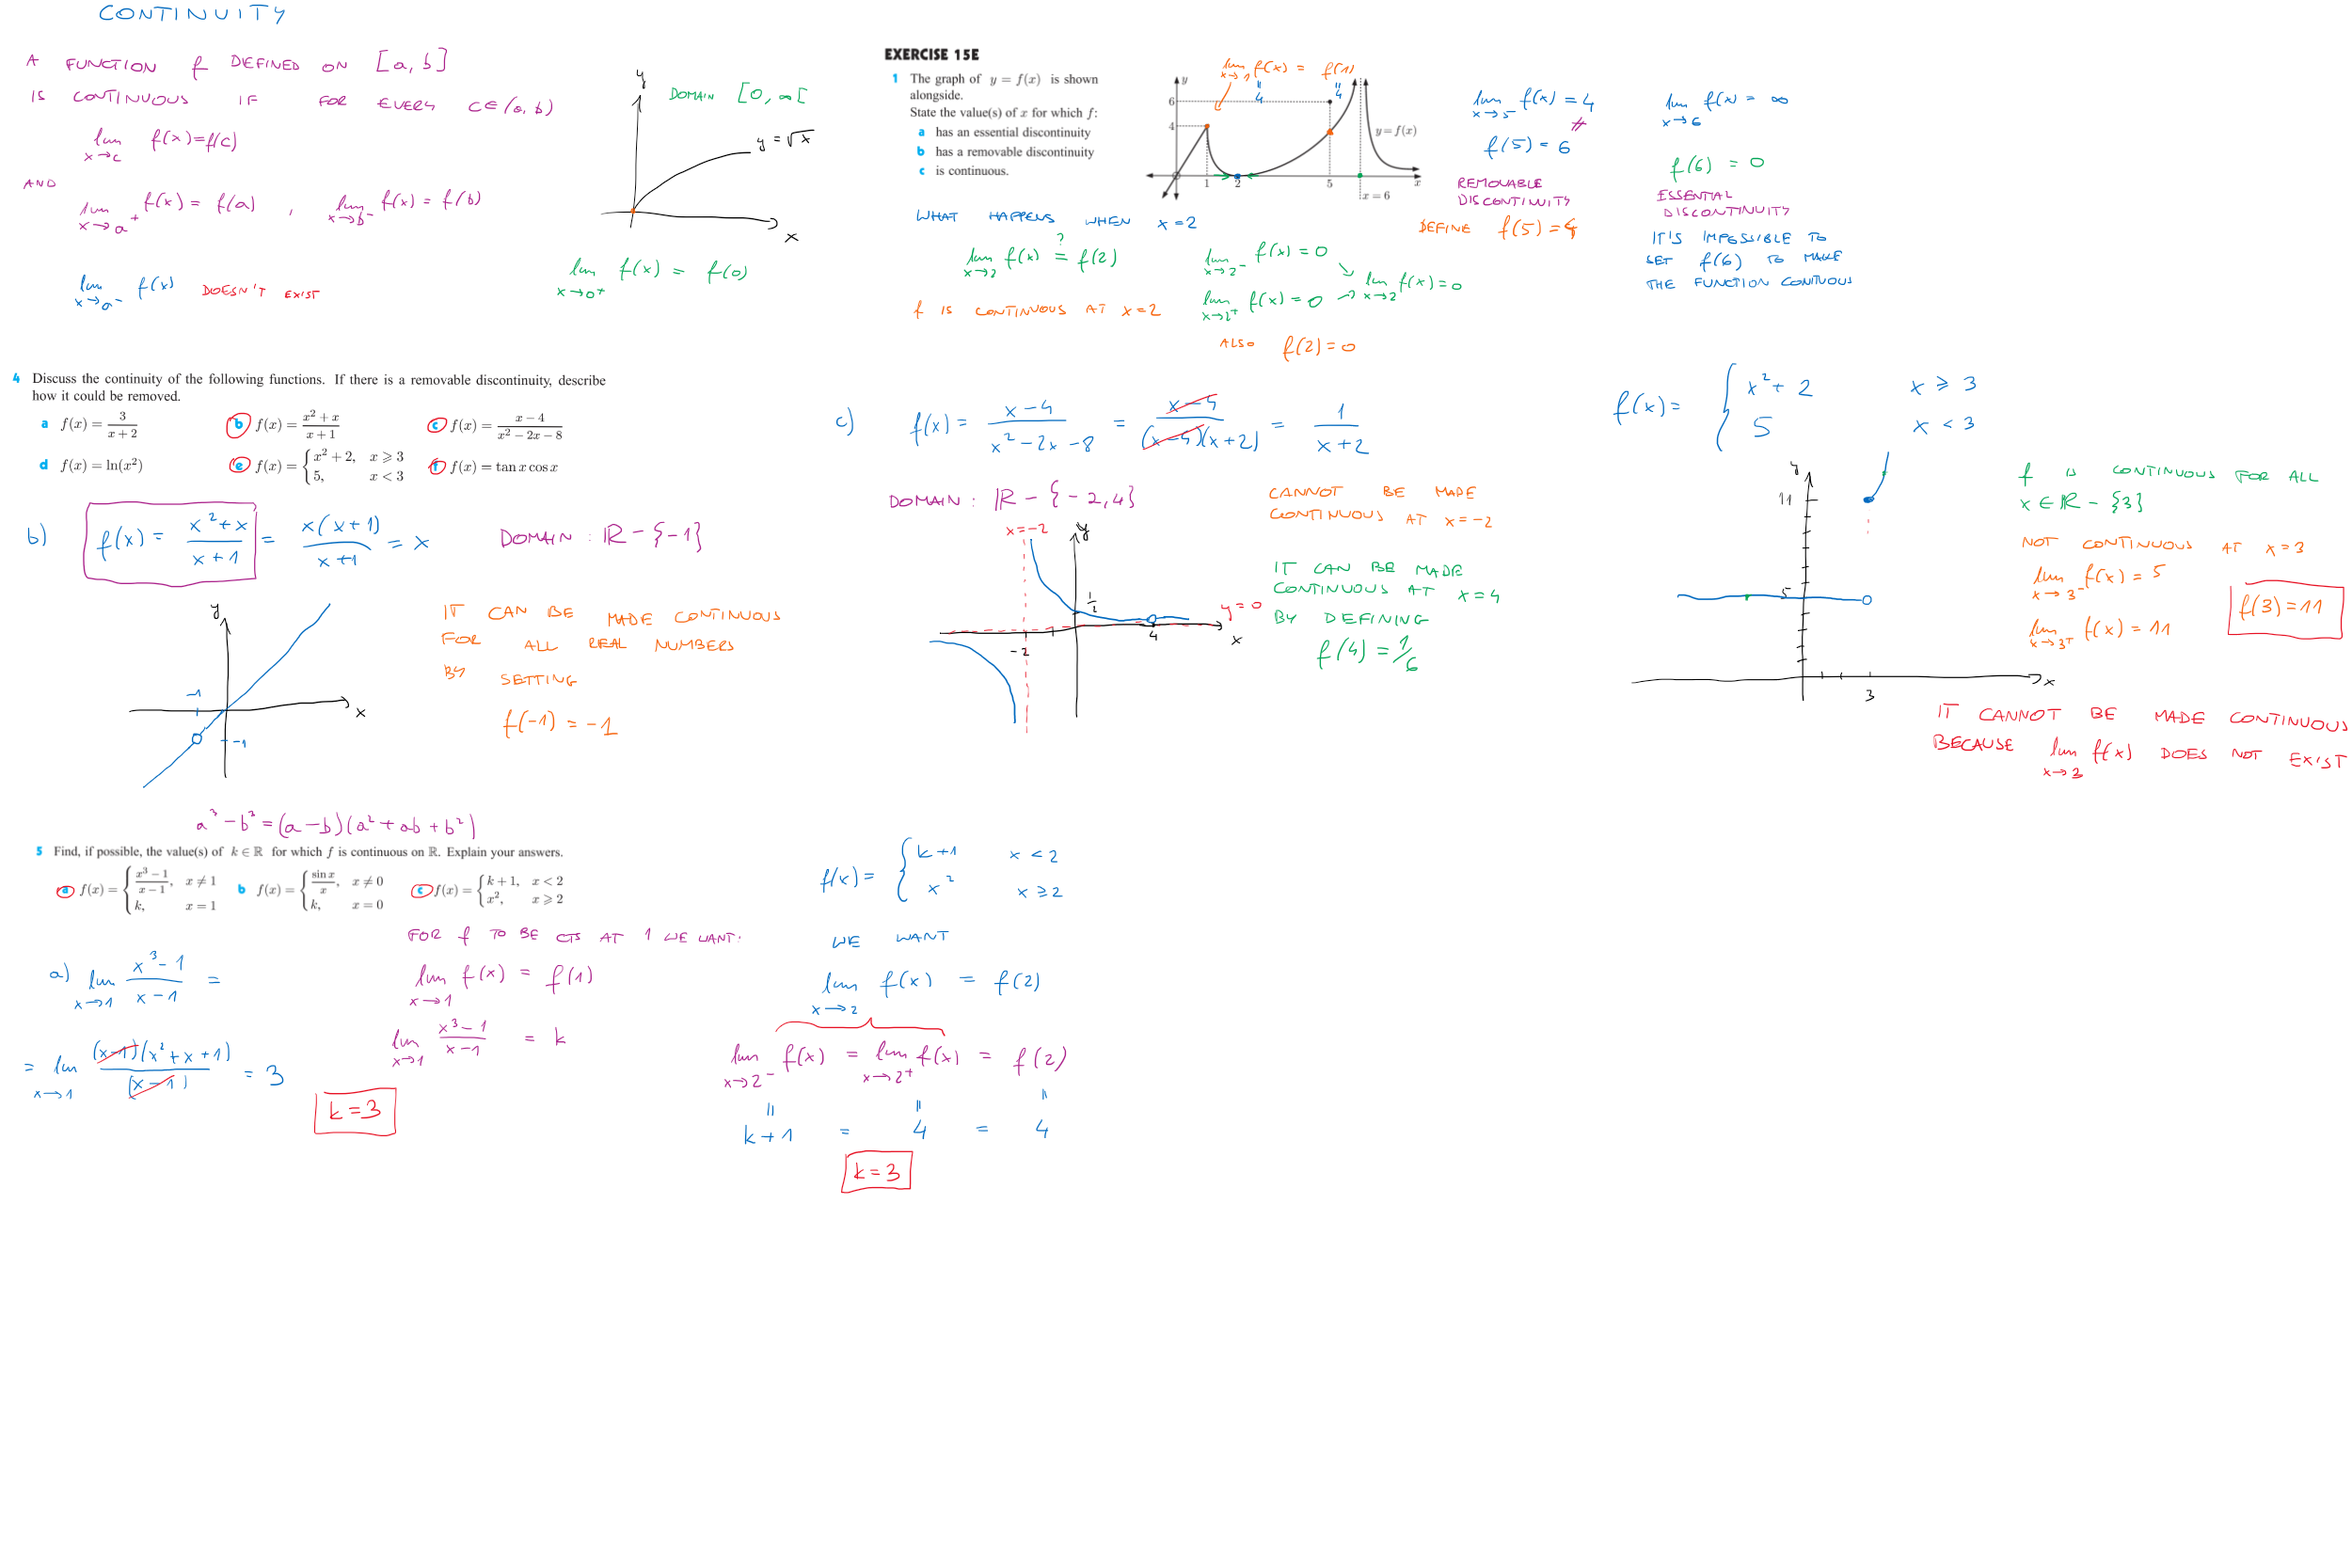 CONTINUITY
A FUNCTION f DEFINED ON [a, b]
IS CONTINUOUS IF FOR EVERY c∈(a, b)
lim x→c f(x)=f(c)
AND
lim x→a⁺ f(x) = f(a) , lim x→b⁻ f(x) = f(b)
lim x→a⁻ f(x) DOESN'T EXIST
y
DOMAIN [0, ∞[
y = √x
x
lim x→0⁺ f(x) = f(0)
EXERCISE 15E
1 The graph of y = f(x) is shown
alongside.
State the value(s) of x for which f:
a has an essential discontinuity
b has a removable discontinuity
c is continuous.
lim x→1 f(x) = f(1)
4 4
y
6
4
y = f(x)
1 2 5 x
x = 6
WHAT HAPPENS WHEN x = 2
lim x→2 f(x) ?= f(2)
lim x→2⁻ f(x) = 0
lim x→2⁺ f(x) = 0
lim x→2 f(x) = 0
f IS CONTINUOUS AT x = 2
ALSO f(2) = 0
lim x→5 f(x) = 4
≠
f(5) = 6
REMOVABLE
DISCONTINUITY
DEFINE f(5) = 4
lim x→6 f(x) = ∞
f(6) = 0
ESSENTIAL
DISCONTINUITY
IT'S IMPOSSIBLE TO
SET f(6) TO MAKE
THE FUNCTION CONITUOUS
4 Discuss the continuity of the following functions. If there is a removable discontinuity, describe
how it could be removed.
a f(x) = 3/(x + 2) b f(x) = (x² + x)/(x + 1) c f(x) = (x − 4)/(x² − 2x − 8)
d f(x) = ln(x²) e f(x) = { x² + 2, x ⩾ 3
5, x < 3
f f(x) = tan x cos x
b) f(x) = (x² + x)/(x + 1) = x(x + 1)/(x + 1) = x DOMAIN : ℝ − {−1}
y
−1
x
−1
IT CAN BE MADE CONTINUOUS
FOR ALL REAL NUMBERS
BY SETTING
f(−1) = −1
c) f(x) = (x − 4)/(x² − 2x − 8) = (x − 4)/((x − 4)(x + 2)) = 1/(x + 2)
DOMAIN : ℝ − {−2, 4}
x = −2
y
1/2
y = 0
−2 4 x
CANNOT BE MADE
CONTINUOUS AT x = −2
IT CAN BE MADE
CONTINUOUS AT x = 4
BY DEFINING
f(4) = 1/6
f(x) = { x² + 2 x ⩾ 3
5 x < 3
y
11
5
3
x
f IS CONTINUOUS FOR ALL
x ∈ ℝ − {3}
NOT CONTINUOUS AT x = 3
lim x→3⁻ f(x) = 5
f(3) = 11
lim x→3⁺ f(x) = 11
IT CANNOT BE MADE CONTINUOUS
BECAUSE lim x→3 f(x) DOES NOT EXIST
a³ − b³ = (a − b)(a² + ab + b²)
5 Find, if possible, the value(s) of k ∈ ℝ for which f is continuous on ℝ. Explain your answers.
a f(x) = { (x³ − 1)/(x − 1), x ≠ 1
k, x = 1
b f(x) = { sin x/x, x ≠ 0
k, x = 0
c f(x) = { k + 1, x < 2
x², x ⩾ 2
a) lim x→1 (x³ − 1)/(x − 1) =
= lim x→1 (x−1)(x² + x + 1)/(x − 1) = 3
FOR f TO BE CTS AT 1 WE WANT:
lim x→1 f(x) = f(1)
lim x→1 (x³ − 1)/(x − 1) = k
k = 3
f(x) = { k + 1 x < 2
x² x ⩾ 2
WE WANT
lim x→2 f(x) = f(2)
lim x→2⁻ f(x) = lim x→2⁺ f(x) = f(2)
k + 1 = 4 = 4
k = 3